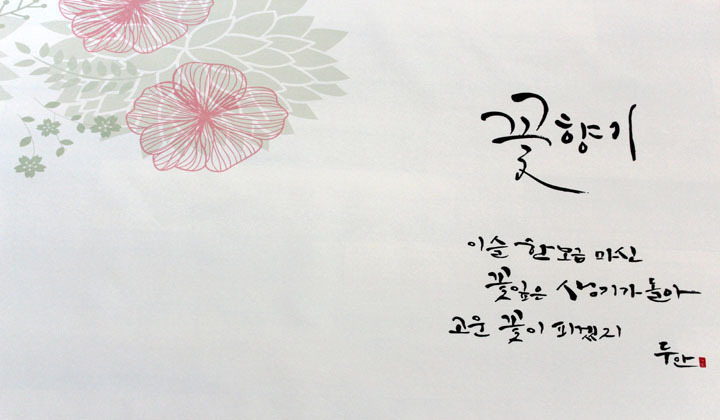 꽃향기
이슬 한모금 마신
꽃잎은 생기가 돌아
고운 꽃이 피겠지
두안